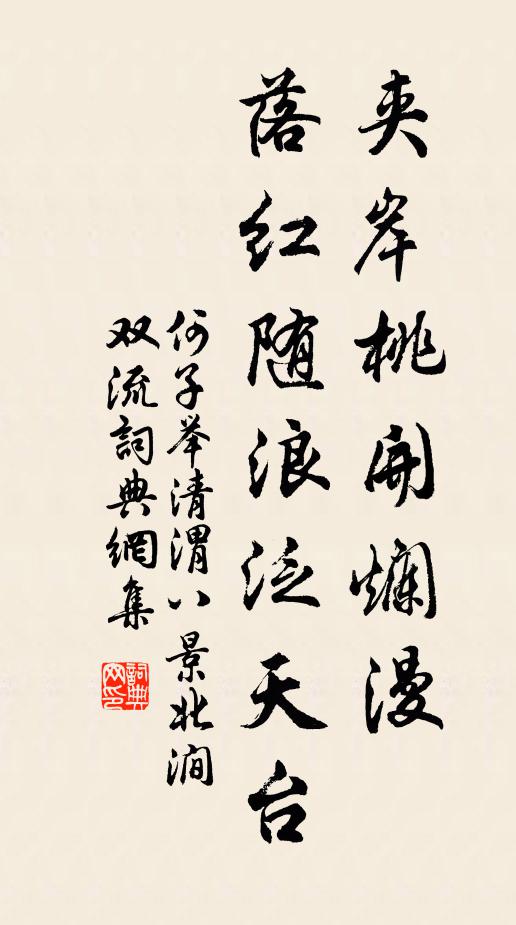 夹岸桃开烂漫
落红随浪泛天台
何子举清渭八景北涧
双流词典網集
词典
网印